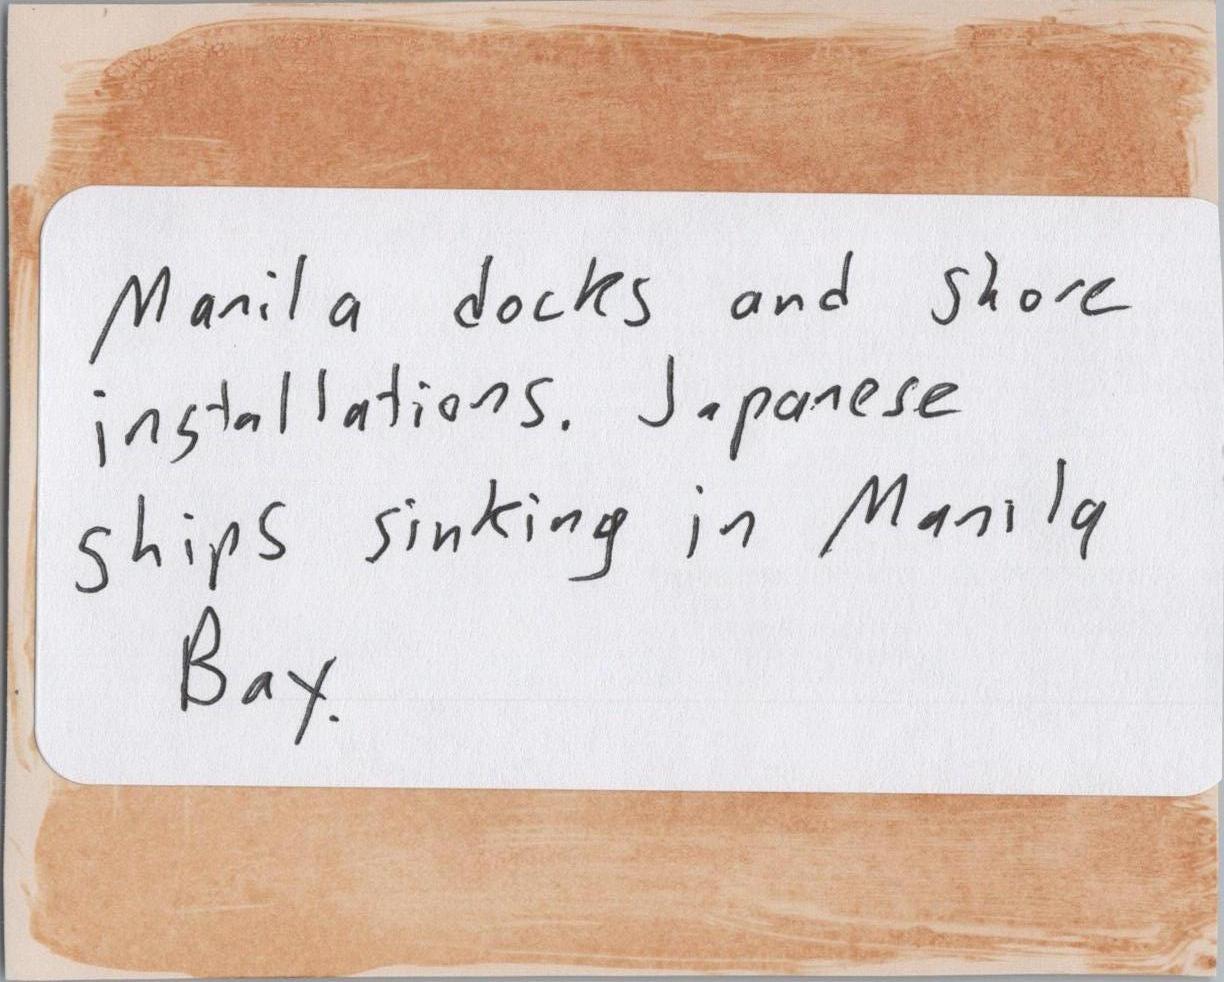 Manila docks and shore
installations. Japanese
ships sinking in Manila
Bay.